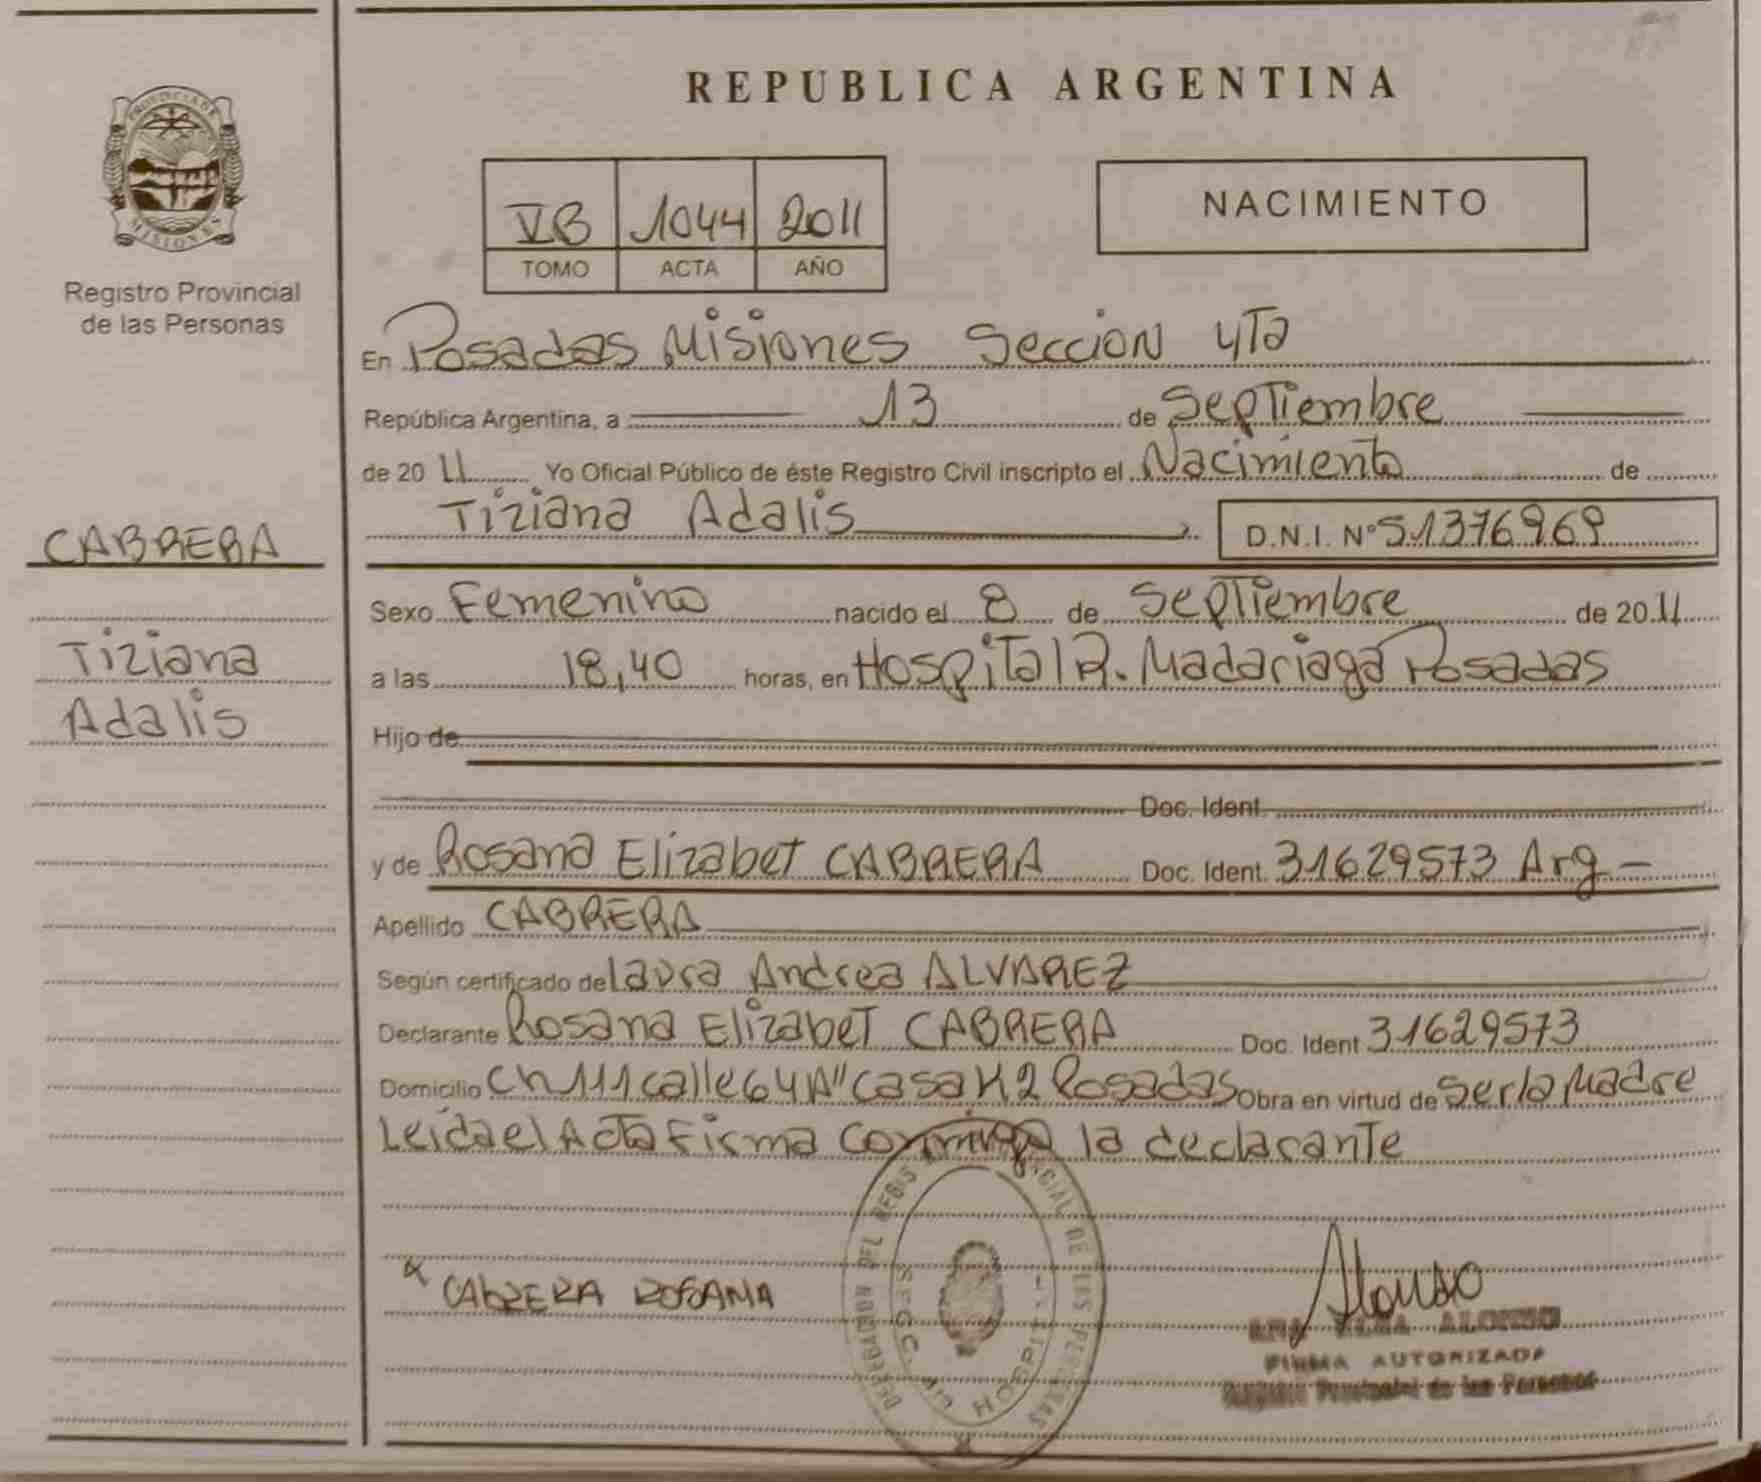 REPUBLICA ARGENTINA
PROVINCIA DE
MISIONES
Registro Provincial
de las Personas
VB 1044 2011
TOMO ACTA AÑO
NACIMIENTO
En Posadas Misiones Seccion 4Ta
República Argentina, a 13 de Septiembre
de 2011 Yo Oficial Público de éste Registro Civil inscripto el Nacimiento de
Tiziana Adalis D.N.I. Nº 51376969
CABRERA
Tiziana
Adalis
Sexo Femenino nacido el 8 de Septiembre de 2011
a las 18,40 horas, en Hospital R. Madariaga Posadas
Hijo de
Doc. Ident.
y de Rosana Elizabet CABRERA Doc. Ident. 31629573 Arg -
Apellido CABRERA
Según certificado de Laura Andrea ALVAREZ
Declarante Rosana Elizabet CABRERA Doc. Ident 31629573
Domicilio Ch 111 calle 64 A" casa Posadas Obra en virtud de Ser la Madre
Leida el Acta Firma conmigo la declarante
CABRERA ROSANA
Alonso
ALONSO
FIRMA AUTORIZADA
Registro Provincial de las Personas
DELEGACION DEL REGISTRO PROVINCIAL DE LAS PERSONAS
HOSPITAL